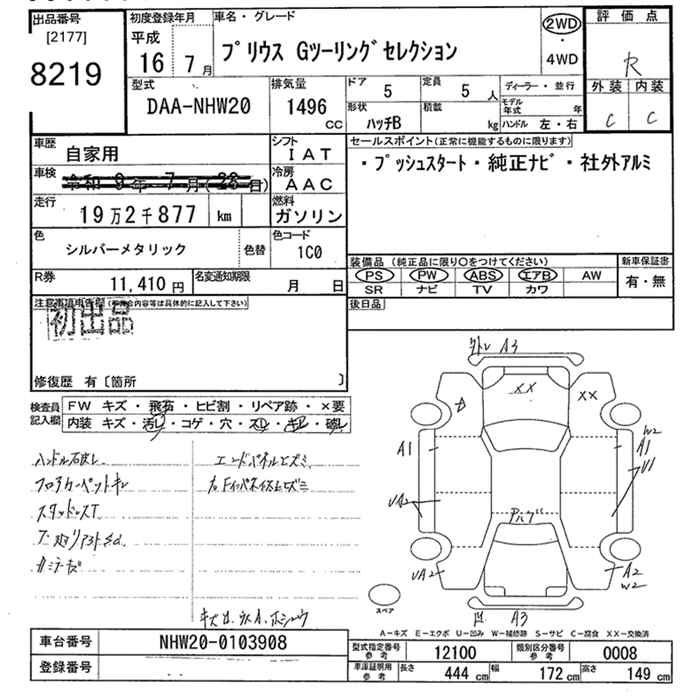 出品番号
[2177]
8219
初度登録年月
平成
16 7 月
車名・グレード
プリウス Gツーリングセレクション
2WD
・
4WD
評価点
R
外装 内装
C C
型式
DAA-NHW20
排気量
1496
CC
ドア
5
定員
5 人
形状
ハッチB
積載
kg
ディーラー・並行
モデル年式 年
ハンドル 左・右
車歴
自家用
シフト
IAT
車検
令和 9年 7月(23日)
冷房
AAC
走行
19万2千877 km
燃料
ガソリン
色
シルバーメタリック
色替
色コード
1C0
R券
11,410 円
名変通知期限
月 日
セールスポイント(正常に機能するものに限ります)
・プッシュスタート・純正ナビ・社外アルミ
装備品(純正品に限り○をつけてください)
PS PW ABS エアB AW
SR ナビ TV カワ
新車保証書
有・無
後日品
注意事項申告欄(不具合内容等は具体的に記入して下さい)
初出品
修復歴 有〔箇所 〕
検査員記入欄
FW キズ・飛石・ヒビ割・リペア跡・×要
内装 キズ・汚レ・コゲ・穴・スレ・キレ・破レ
フロアカーペットキレ
スタッドレスT
エンドパネルヒズミ
A3
XX
XX
A1
W2
A1
U1
UA2
UA2
A2
W2
A3
スペア
A-キズ E-エクボ U-凹み W-補修跡 S-サビ C-腐食 XX-交換済
車台番号
NHW20-0103908
登録番号
型式指定番号
参考
12100
類別区分番号
参考
0008
車庫証明用
参考
長さ 444 cm 幅 172 cm 高さ 149 cm